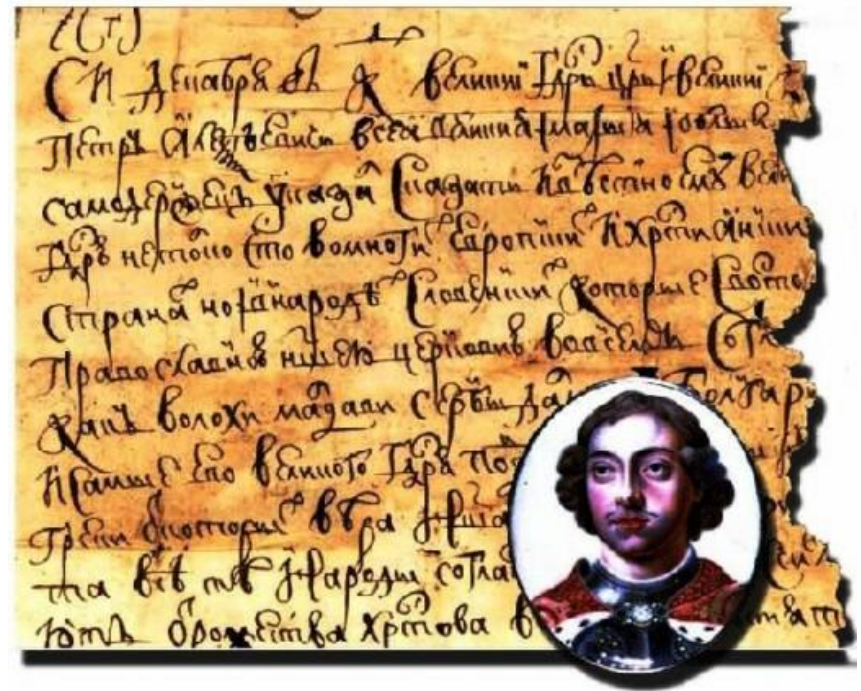 СИ Декабря въ К великиі Гдрь црь і великиі
Петръ Алеѯѣевичь всеа великиа і малыа і бѣлыа
самодержецъ указа сказати извѣстно ему вели
Гдрю не толко что во многи европски и християнски
страна но і в народѣ словенски которые с восто
православною ншею церковию во всемъ согл
какъ волохи мадави сербы да болгар
и самые его великого Гдря по
греки о которы вѣра нша
та всѣ тѣ народы согла
ютъ о рожества Хртова в